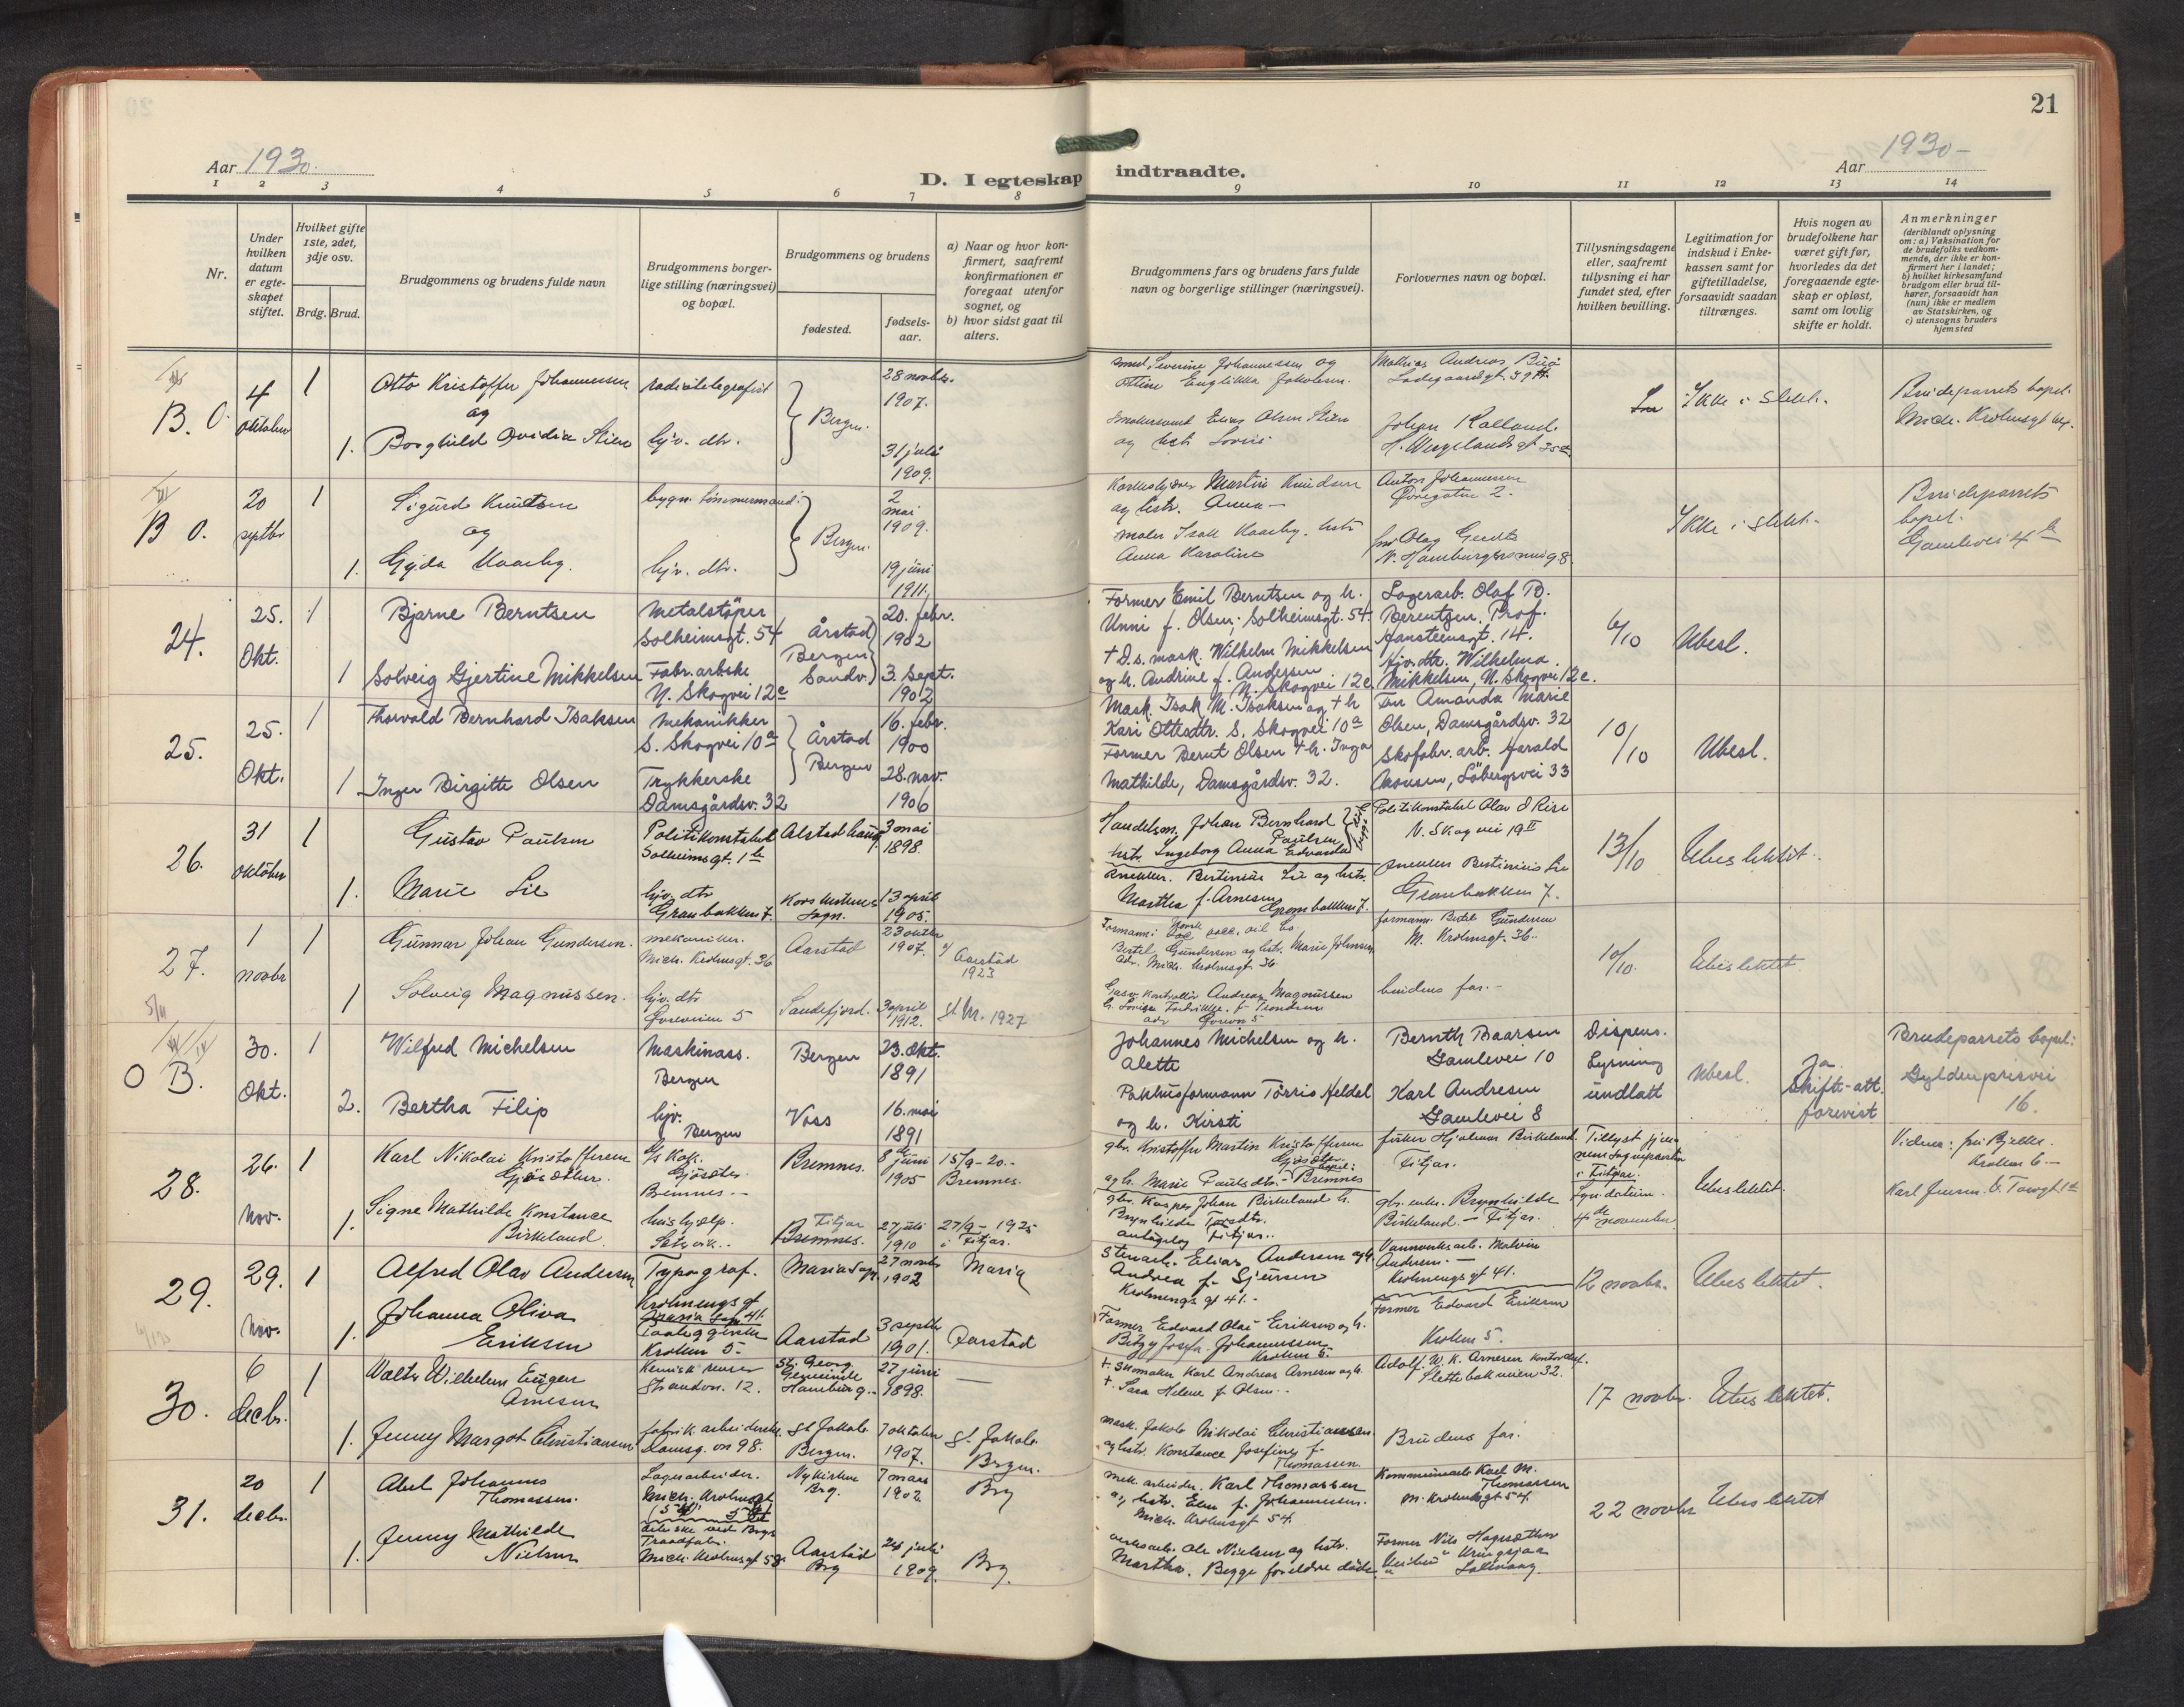 21
Aar 1930.
Aar 1930-
D. I egteskap indtraadte.
1 2 3 4 5 6 7 8 9 10 11 12 13 14
Nr.
Under hvilken datum er egteskapet stiftet.
Hvilket gifte 1ste, 2det, 3dje osv.
Brdg. Brud.
Brudgommens og brudens fulde navn
Brudgommens borgerlige stilling (næringsvei) og bopæl.
Brudgommens og brudens
fødested.
fødselsaar.
a) Naar og hvor konfirmert, saafremt konfirmationen er foregaat utenfor sognet, og
b) hvor sidst gaat til alters.
Brudgommens fars og brudens fars fulde navn og borgerlige stillinger (næringsvei).
Forlovernes navn og bopæl.
Tillysningsdagene eller, saafremt tillysning ei har fundet sted, efter hvilken bevilling.
Legitimation for indskud i Enkekassen samt for giftetilladelse, forsaavidt saadan tiltrænges.
Hvis nogen av brudefolkene har været gift før, hvorledes da det foregaaende egteskap er opløst, samt om lovlig skifte er holdt.
Anmerkninger
(deriblandt oplysning om: a) Vaksination for de brudefolks vedkommende, der ikke er konfirmert her i landet;
b) hvilket kirkesamfund brudgom eller brud tilhører, forsaavidt han (hun) ikke er medlem av Statskirken, og
c) utensogns bruders hjemsted
B. O. 4 oktober 1 Otto Kristoffer Johannessen radiotelegrafist Bergen. 28 novbr. 1907.
og
1. Borghild Ovidia Stien hjv. dtr. 31 juli 1909.
Severine Johannessen og
Mathias Andreas
Ladegaardsgt. 39
Elias Olsen Stien
og hstr. Lovise
Johan Kalland.
H. Wergelandsgt 35
Ikke i slekt.
Brudeparrets bopel.
Mich. Krohnsgt
B O. 20 septbr 1 Sigurd Knudsen bygn. tømmermand. Bergen. 2 mai 1909.
og
1. Gyda Kaarby. hjv. dtr. 19 juni 1911.
Martin Knudsen
og hstr. Anna -
maler Isak Kaarby. hstr
Anna Karoline
Anton Johannessen
Øvregaten 2.
fru Olag
Ikke i slekt.
Brudeparrets
bopel.
Gamlevei 4
24. 25. Okt. 1 Bjarne Berntsen Metalstøper Solheimsgt. 54 Årstad Bergen 20. febr. 1902
1 Solveig Gjertine Mikkelsen Fabr. arbske N. Skogvei 12c Sandv. 3. Sept. 1902
Former Emil Berntsen og h.
Unni f. Olsen; Solheimsgt. 54.
† D.s. mask. Wilhelm Mikkelsen
og h. Andrine f. Andersen
N. Skogvei 12c
Lagerarb. Olaf B.
Berentzen, Prof.
Hansteensgt. 14.
Hjv. dtr. Wilhelma
Mikkelsen, N. Skogvei 12c.
6/10 Ubesl.
25. 25. Okt. 1 Thorvald Bernhard Isaksen Mekanikker S. Skogvei 10a Årstad Bergen 16. febr. 1900
1 Inger Birgitte Olsen Trykkerske Damsgårdsv. 32 28. nov. 1906
Mask. Isak M. Isaksen og † h
Kari Ottesdtr. S. Skogvei 10a
Former Bernt Olsen † h. Inga
Mathilde, Damsgårdsv. 32.
Fru Amanda Marie
Olsen, Damsgårdsv. 32
Skofabr. arb. Harald
Monsen, Løbergsvei 33
10/10 Ubesl.
26. 31 oktober 1 Gustav Paulsen Politikonstabel Solheimsgt. 1b Alstadhaug 3 mai 1898.
1. Marie Lie hjv. dtr Granbakken 7. Korskirkens sogn. 13 april 1905.
Handelsm. Johan Bernhard Paulsen
hstr. Ingeborg Anna Edvarda
snekker. Bertinius Lie og hstr.
Marthea f. Arnesen Granbakken 7.
Politikonstabel Olav O Rise
N. Skogvei 19 II
snekker Bertinius Lie
Granbakken 7.
13/10 Ubeslektet.
27. 1 novbr 1 Gunnar Johan Gundersen. mekaniker. Mich. Krohnsgt. 36 Aarstad 23 oktbr 1907. Aarstad 1923
1 Solveig Magnussen. hjv. dtr Øvreveien 5 Sandefjord. 3 april 1912. St M. 1927
Formann:
Bertel Gundersen og hstr. Marie Johnsen
adr. Mich. Krohnsgt. 36.
Gasv. kontrollør Andreas Magnussen
formann. Bertel Gundersen
M. Krohnsgt. 36.
brudens far. -
10/10. Ubeslektet
O B. 30. Okt. 1 Wilfred Michelsen Maskinass. Bergen Bergen 23. Okt. 1891
2. Bertha Filip hjv. Bergen Voss 16. mai 1891
Johannes Michelsen og h.
Alette
Pakhusformann Torris Heldal
og h. Kirsti
Bernth Baarsen
Gamlevei 10
Karl Andresen
Gamlevei 8
Dispens. Lysning undlatt
Ubesl.
Ja. Skifte-att. forevist
Brudeparrets bopel:
Gyldenprisvei
16.
28. 26. Nov. 1 Karl Nikolai Kristoffersen Gjøsæter. Bremnes. - Bremnes. 8de juni 1905 15/9-20.- Bremnes.
1. Signe Mathilde Konstance Birkeland. hushjelp. Fitjar Bremnes. 27 juli 1910 27/9 - 1925 i Fitjar.
gbr. Kristoffer Martin Kristoffersen
Gjøsæter
og h. Marie Paulsdtr. - Bremnes
gbr. Kasper Johan Birkeland h.
Brynhilde
fisker Hjalmar Birkeland
Fitjar.
gbr. enke. Brynhilde
Birkeland - Fitjar.
Tillyst
i Fitjar.
4de november
Ubeslektet.
Vidner: fru Bjelke.
Krohnen 6.-
29. 29. Nov. 1 Alfred Olav Andersen Typograf. Krohnengsgt 41. Maria Sogn 27 novbr 1902 Maria
1. Johanna Oliva Eriksen Krohnen 5- Aarstad 3 septbr 1901. Aarstad
Elias Andersen og h.
Andrea f. Sjursen
Krohnengsgt 41. -
Former Edvard Olai Eriksen og h.
Johannessen
Krohnen 5.
Vannverksarb. Malvin
Andersen. -
Krohnengsgt 41.
Former Edvard Eriksen
Krohnen 5.
12 novbr. Ubeslektet.
30. 6 decbr. 1 Walter Wilhelm Eugen Arnesen Strandvn. 12. St. Georg Gemeinde Hamburg.- 27 juni 1898. -
1. Jenny Margot Christiansen fabrik arbeiderske Damsg. vn 98. St Jakob Bergen. 7 oktober 1907. St. Jakob Bergen.
† Skomaker Karl Andreas Arnesen og h.
† Sara Helene f. Olsen. -
mask. Jakob Nikolai Christiansen
og hstr. Konstance Josefine f.
Thomassen.
Adolf. W. K. Arnesen kontorchef.
Slettebakveien 32.
Brudens far.
17 novbr. Ubeslektet.
31. 20 decbr. 1 Abel Johannes Thomassen. Lagerarbeider. Mich. Krohnsgt Nykirken Brg. 7 mars 1902 Brg
1. Jenny Mathilde Nielsen Traadfabr. Mich. Krohnsgt 58 Aarstad Brg 24 juli 1909. Brg.
mek. arbeider. Karl Thomassen
og hstr. Elen f. Johannessen.
Mich. Krohnsgt 54.
Ole Nielsen og hstr.
Martha. Begge foreldre døde.
Kommunearb. Karl M.
Thomassen
M. Krohnsgt 54.
Former Nils
22 novbr Ubeslektet